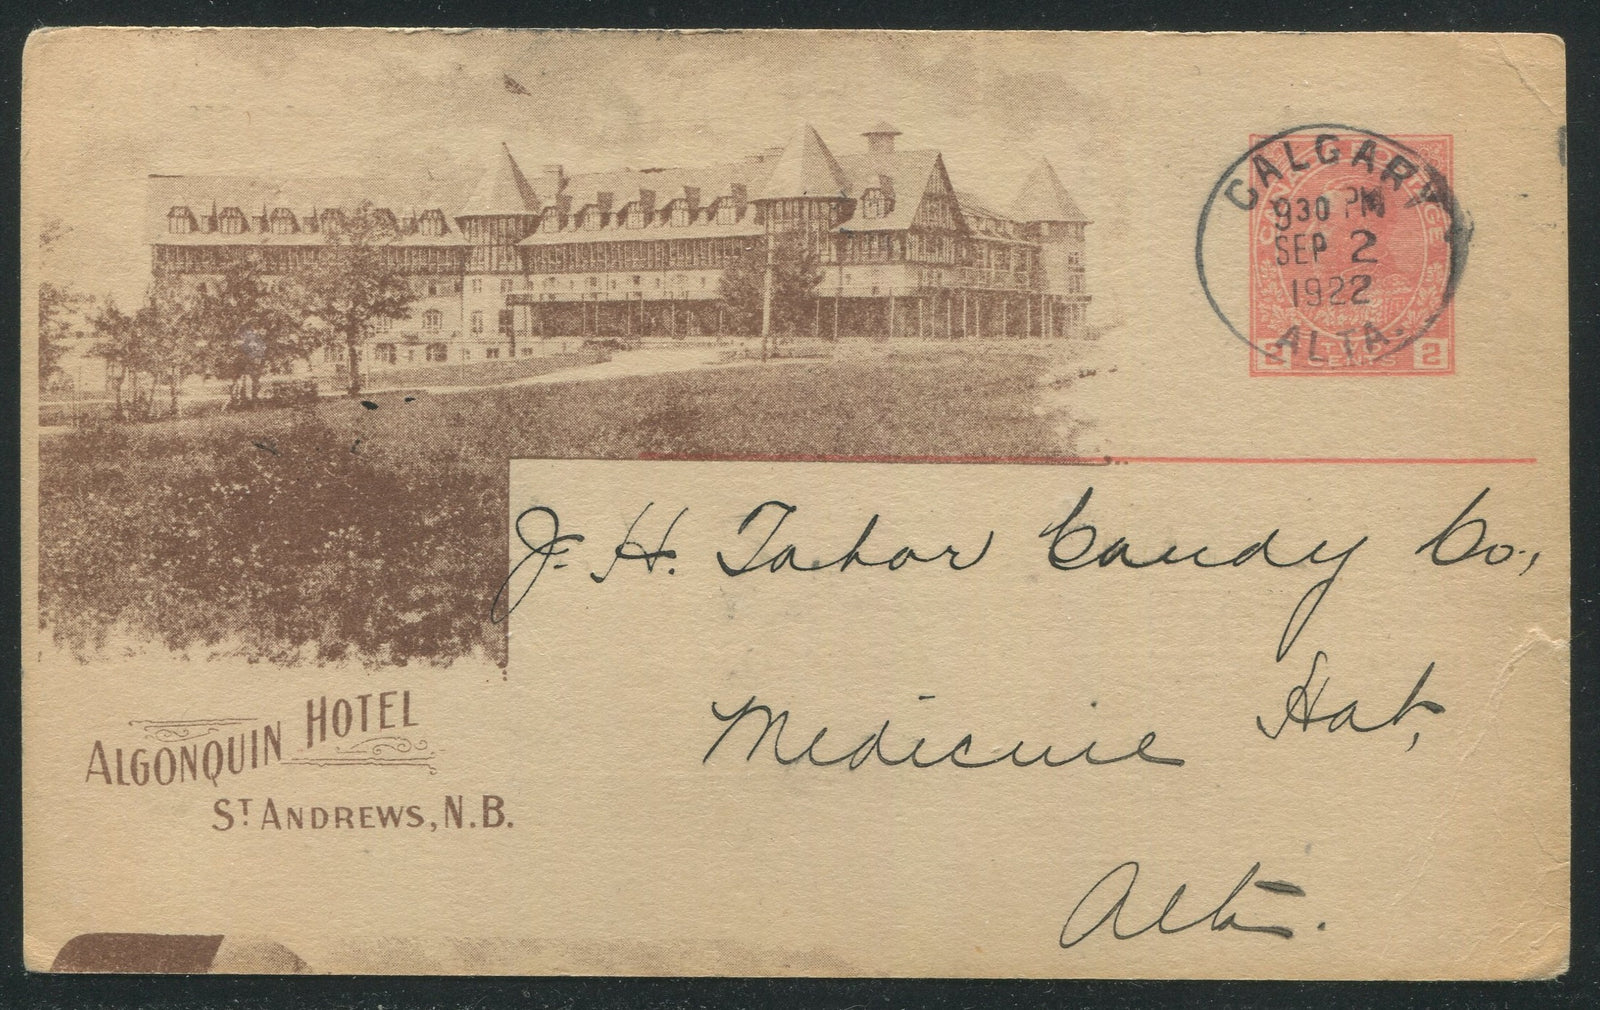 CALGARY
930 PM
SEP 2
1922
ALTA.
CANADA POSTAGE
2 CENTS 2
J. H. Tabor Candy Co.,
Medicine Hat,
Alta.
ALGONQUIN HOTEL
ST ANDREWS, N.B.